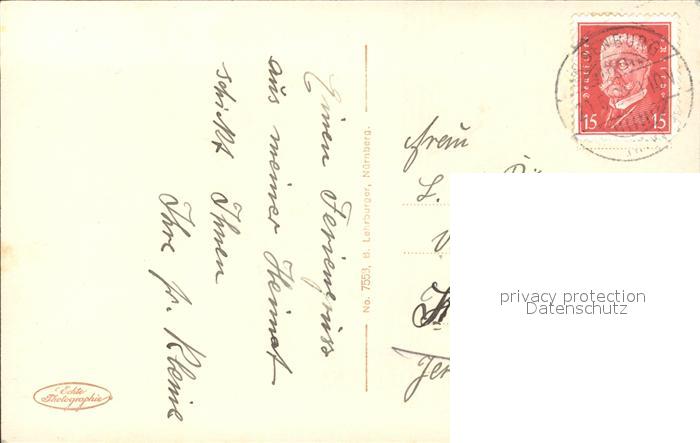 Einen Feriengruss
aus meiner Heimat
schickt Ihnen
Ihre fr. Kleine
No. 7553, B. Lehrburger, Nürnberg.
Echte
Photographie
Deutsches Reich
15 15
Frau
L.
privacy protection
Datenschutz